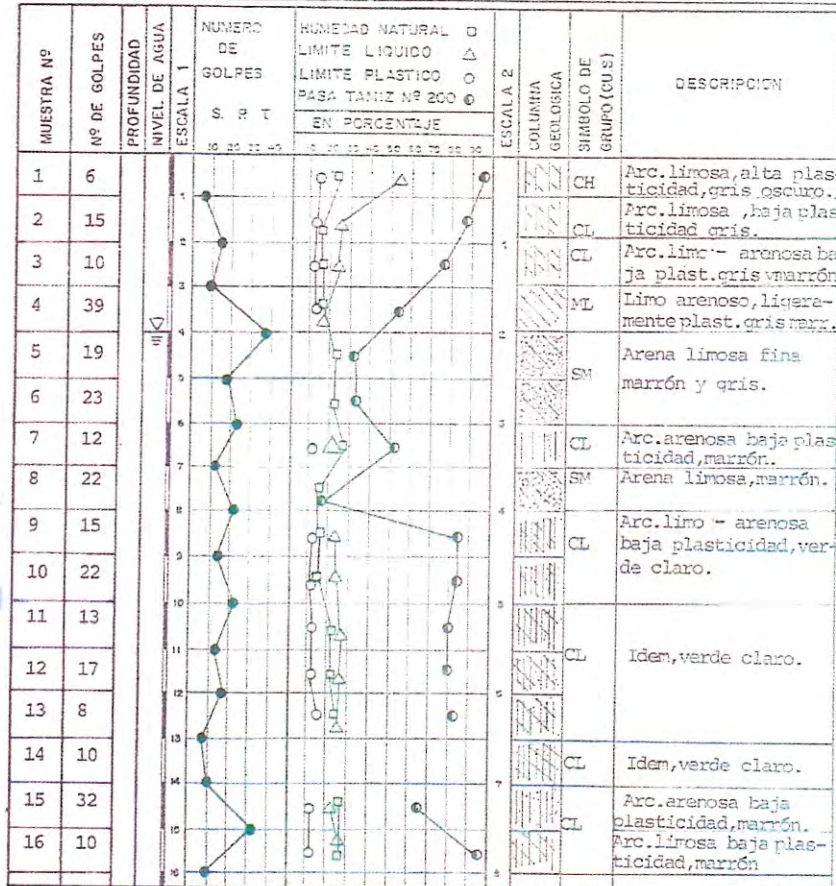 MUESTRA Nº
Nº DE GOLPES
PROFUNDIDAD
NIVEL DE AGUA
ESCALA 1
NUMERO
DE
GOLPES
S. P. T
10 20 30 40
HUMEDAD NATURAL
LIMITE LIQUIDO
LIMITE PLASTICO
PASA TAMIZ Nº 200
EN PORCENTAJE
10 20 30 40 50 60 70 80 90
ESCALA 2
COLUMNA
GEOLOGICA
SIMBOLO DE
GRUPO (CU S)
DESCRIPCION
1 6 CH Arc.limosa,alta plas-
ticidad,gris oscuro.
2 15 CL Arc.limosa ,baja plas
ticidad gris.
3 10 CL Arc.limo - arenosa ba
ja plast.gris ymarrón
4 39 ML Limo arenoso,ligera-
mente plast.gris marr.
5 19 SM Arena limosa fina
6 23 marrón y gris.
7 12 CL Arc.arenosa baja plas
ticidad,marrón.
8 22 SM Arena limosa,marrón.
9 15 CL Arc.limo - arenosa
baja plasticidad,ver-
10 22 de claro.
11 13
12 17 CL Idem,verde claro.
13 8
14 10 CL Idem,verde claro.
15 32 CL Arc.arenosa baja
plasticidad,marrón.
16 10 Arc.limosa baja plas-
ticidad,marrón
1
2
3
4
5
6
7
8
9
10
11
12
13
14
15
16
1
2
3
4
5
6
7
8